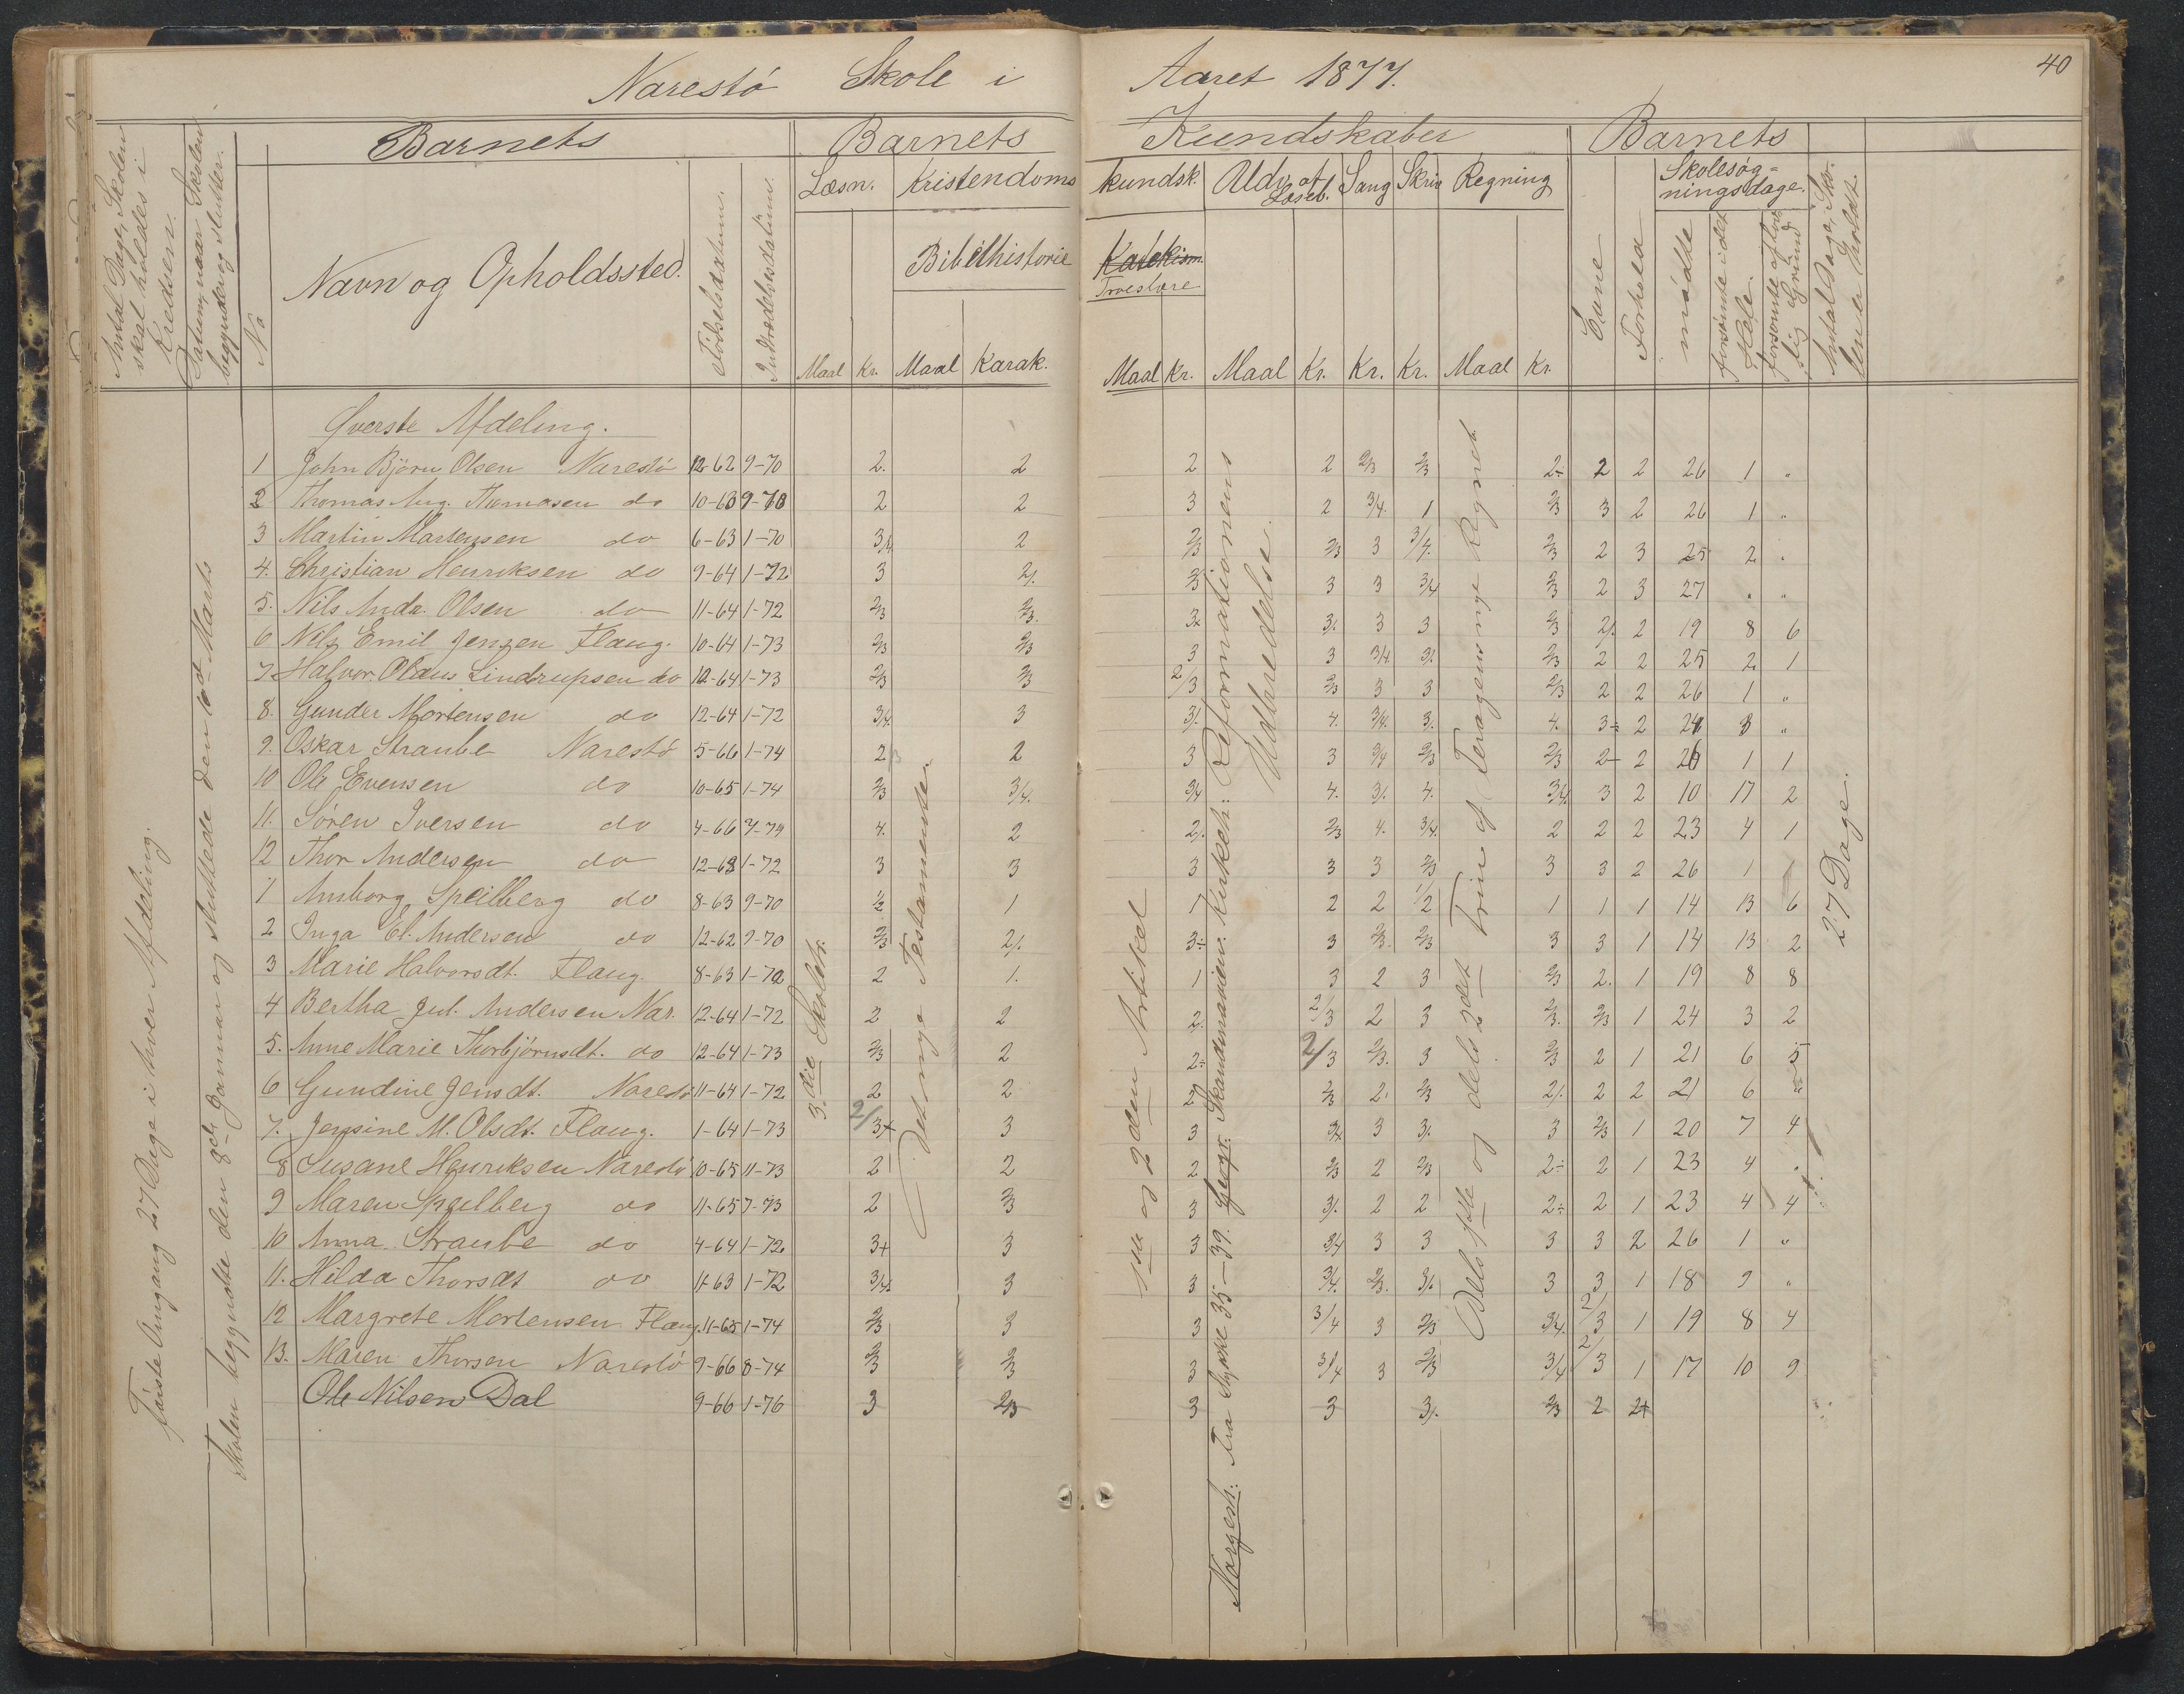 Narestö Skole i Aaret 1877. 40
Antal Dage, Skolen skal holdes i Kredsen.
Datum, naar Skolen begynder og slutter.
Barnets Barnets Kundskaber Barnets
No Navn og Opholdssted. Fødselsdatum. Indtrædelsesdatum.
Læsn. Kristendoms kundsk. Udv. af Læseb. Sang Skriv Regning Evne Forhold Skolesøgningsdage.
Bibelhistorie Katekism. Troeslære
mødte forsømte i det Hele. forsømte af lovlig Grund
Antal Dage, Skolen er holdt.
Maal Kr. Maal Karak. Maal Kr. Maal Kr. Kr. Kr. Maal Kr.
Øverste Afdeling.
1 John Björn Olsen Narestö 12-62 9-70 2. 2 2 2 2/3 2/3 2÷ 2 2 26 1 "
2 Thomas Aug. Thomasen do 10-63 9-70 2 2 3 2 3/4. 1 2/3 3 2 26 1 "
3 Martin Martensen do 6-63 1-70 3/4 2 2/3 2/3 3 3/4. 2/3 2 3 25 2 "
4. Christian Henriksen do 9-64 1-72 3 2/. 2/3 3 3 3/4 2/3 2 3 27 " "
5. Nils Andr. Olsen do 11-64 1-72 2/3 2/3. 3. 3/. 3 3 2/3 2/. 2 19 8 6
6 Nils Emil Jensen Flaug. 10-64 1-73 2/3 2/3 3 3 3/4 3/. 2/3 2 2 25 2 1
7. Halvor Olaus Lindrupsen do 12-64 1-73 2/3 2/3 2/3 2/3 3 3 2/3 2 2 26 1 "
8. Gunder Mortensen do 12-64 1-72 3/4. 3 3/. 4. 3/4. 3. 4. 3÷ 2 24 3 "
9. Oskar Straube Narestö 5-66 1-74 2 2 3 3 3/4 2/3 2/3 2- 2 26 1 1
10 Ole Evensen do 10-65 1-74 2/3 3/4. 3/4 4. 3/. 4. 3/4. 3 2 10 17 2
11. Sören Iversen do 4-66 7-74 4. 2 2/. 2/3 4. 3/4. 2 2 2 23 4 1
12 Thor Andersen do 12-63 1-72 3 3 3 3 3 2/3 3 3 2 26 1 1
1 Amborg Speilberg do 8-63 9-70 1/2 1 1 2 2 1/2 1 1 1 14 13 6
2 Inga El. Andersen do 12-62 9-70 2/3 2/. 3÷ 3 2/3. 2/3 3 3 1 14 13 2
3 Marie Halvorsdt. Flaug. 8-63 1-72 2 1. 1 3 2 3 2/3 2. 1 19 8 8
4 Bertha Jul. Andersen Nar. 12-64 1-72 2 2 2/. 2/3 2 3 2/3. 2/3 1 24 3 2
5. Anne Marie Thorbjörnsdt. do 12-64 1-73 2/3 2 2÷ 2/3 2/3. 3 2/3 2 1 21 6 5
6 Gundine Jensdt. Narestö 11-64 1-72 2 2 2 2/3 2. 2/3 2/. 2 2 21 6 "
7. Jensine M. Olsdt. Flaug. 1-64 1-73 2/3+ 3 3 3/4 3 3/. 3 2/3 1 20 7 4
8 Susane Henriksen Narestö 10-65 11-73 2 2 2 2/3 2 2/3 2÷ 2 1 23 4 "
9 Maren Speilberg do 11-65 7-73 2 2/3 3 3/. 2 2 2÷ 2 1 23 4 4
10 Anna Straube do 4-64 1-72 3+ 3 3 3/4 3 3 3 3 2 26 1 "
11. Hilda Thorsdt do 11-63 1-72 3/4. 3 3 3/4. 2/3. 3/. 3 3 1 18 9 "
12 Margrete Mortensen Flaug. 11-65 1-74 2/3 3 3 3/4 3 2/3 3/4. 2/3 1 19 8 4
13. Maren Thorsen Narestö 9-66 8-74 2/3 2/3 3 3/4 3 2/3 3/4 2/3 1 17 10 9
Ole Nilsen Dal 9-66 1-76 3 2/3 3 3 3/. 2/3 2 2+
Første Omgang 27 Dage i hver Afdeling.
Skolen begyndte den 8de Januar og sluttede den 10de Marts
3.die Skoletr.
Det nye Testamente
1ste og 2den Artikel
Norgesh: Fra Stykke 35-39. Geogr: Skandinavien. Kirkeh: Reformationens Udbredelse.
Dels 1ste og dels 2det Trin af Teragens nye Regneb.
27 Dage.